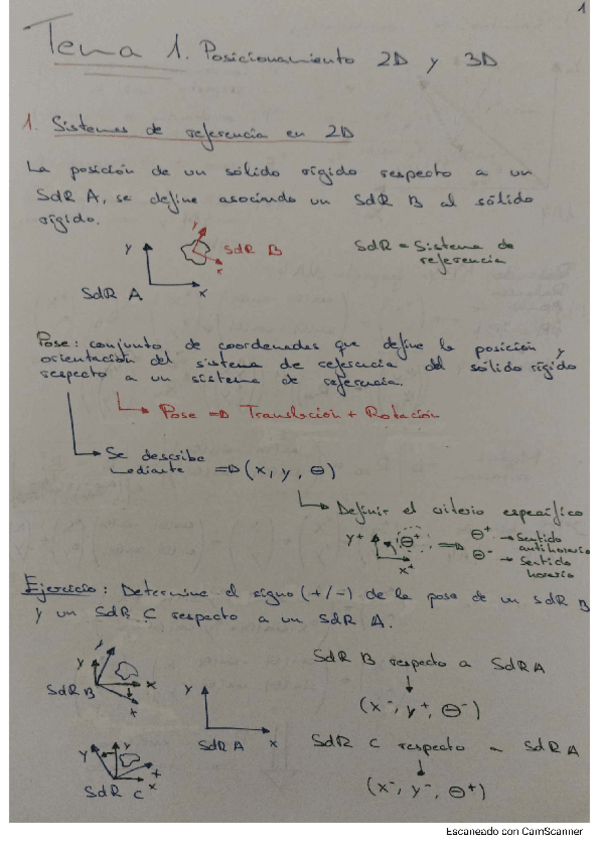 1
Tema 1. Posicionamiento 2D y 3D
1. Sistemas de referencia en 2D
La posición de un sólido rígido respecto a un
SdR A, se define asociando un SdR B al sólido
rígido.
y
x
SdR B
SdR A
y
x
SdR = Sistema de
referencia
Pose: conjunto de coordenadas que define la posición y
orientación del sistema de referencia del sólido rígido
respecto a un sistema de referencia.
Pose ⇒ Translación + Rotación
Se describe
mediante ⇒ (x, y, θ)
Definir el criterio específico
y+ θ+ x+ ⇒ θ+ → Sentido
antihorario
θ- → Sentido
horario
Ejercicio: Determine el signo (+/-) de la pose de un SdR B
y un SdR C respecto a un SdR A.
y
y
x
x
SdR B
y
x
SdR A
y
y
x
x
SdR C
SdR B respecto a SdR A
(x-, y+, θ-)
SdR C respecto a SdR A
(x-, y-, θ+)
Escaneado con CamScanner